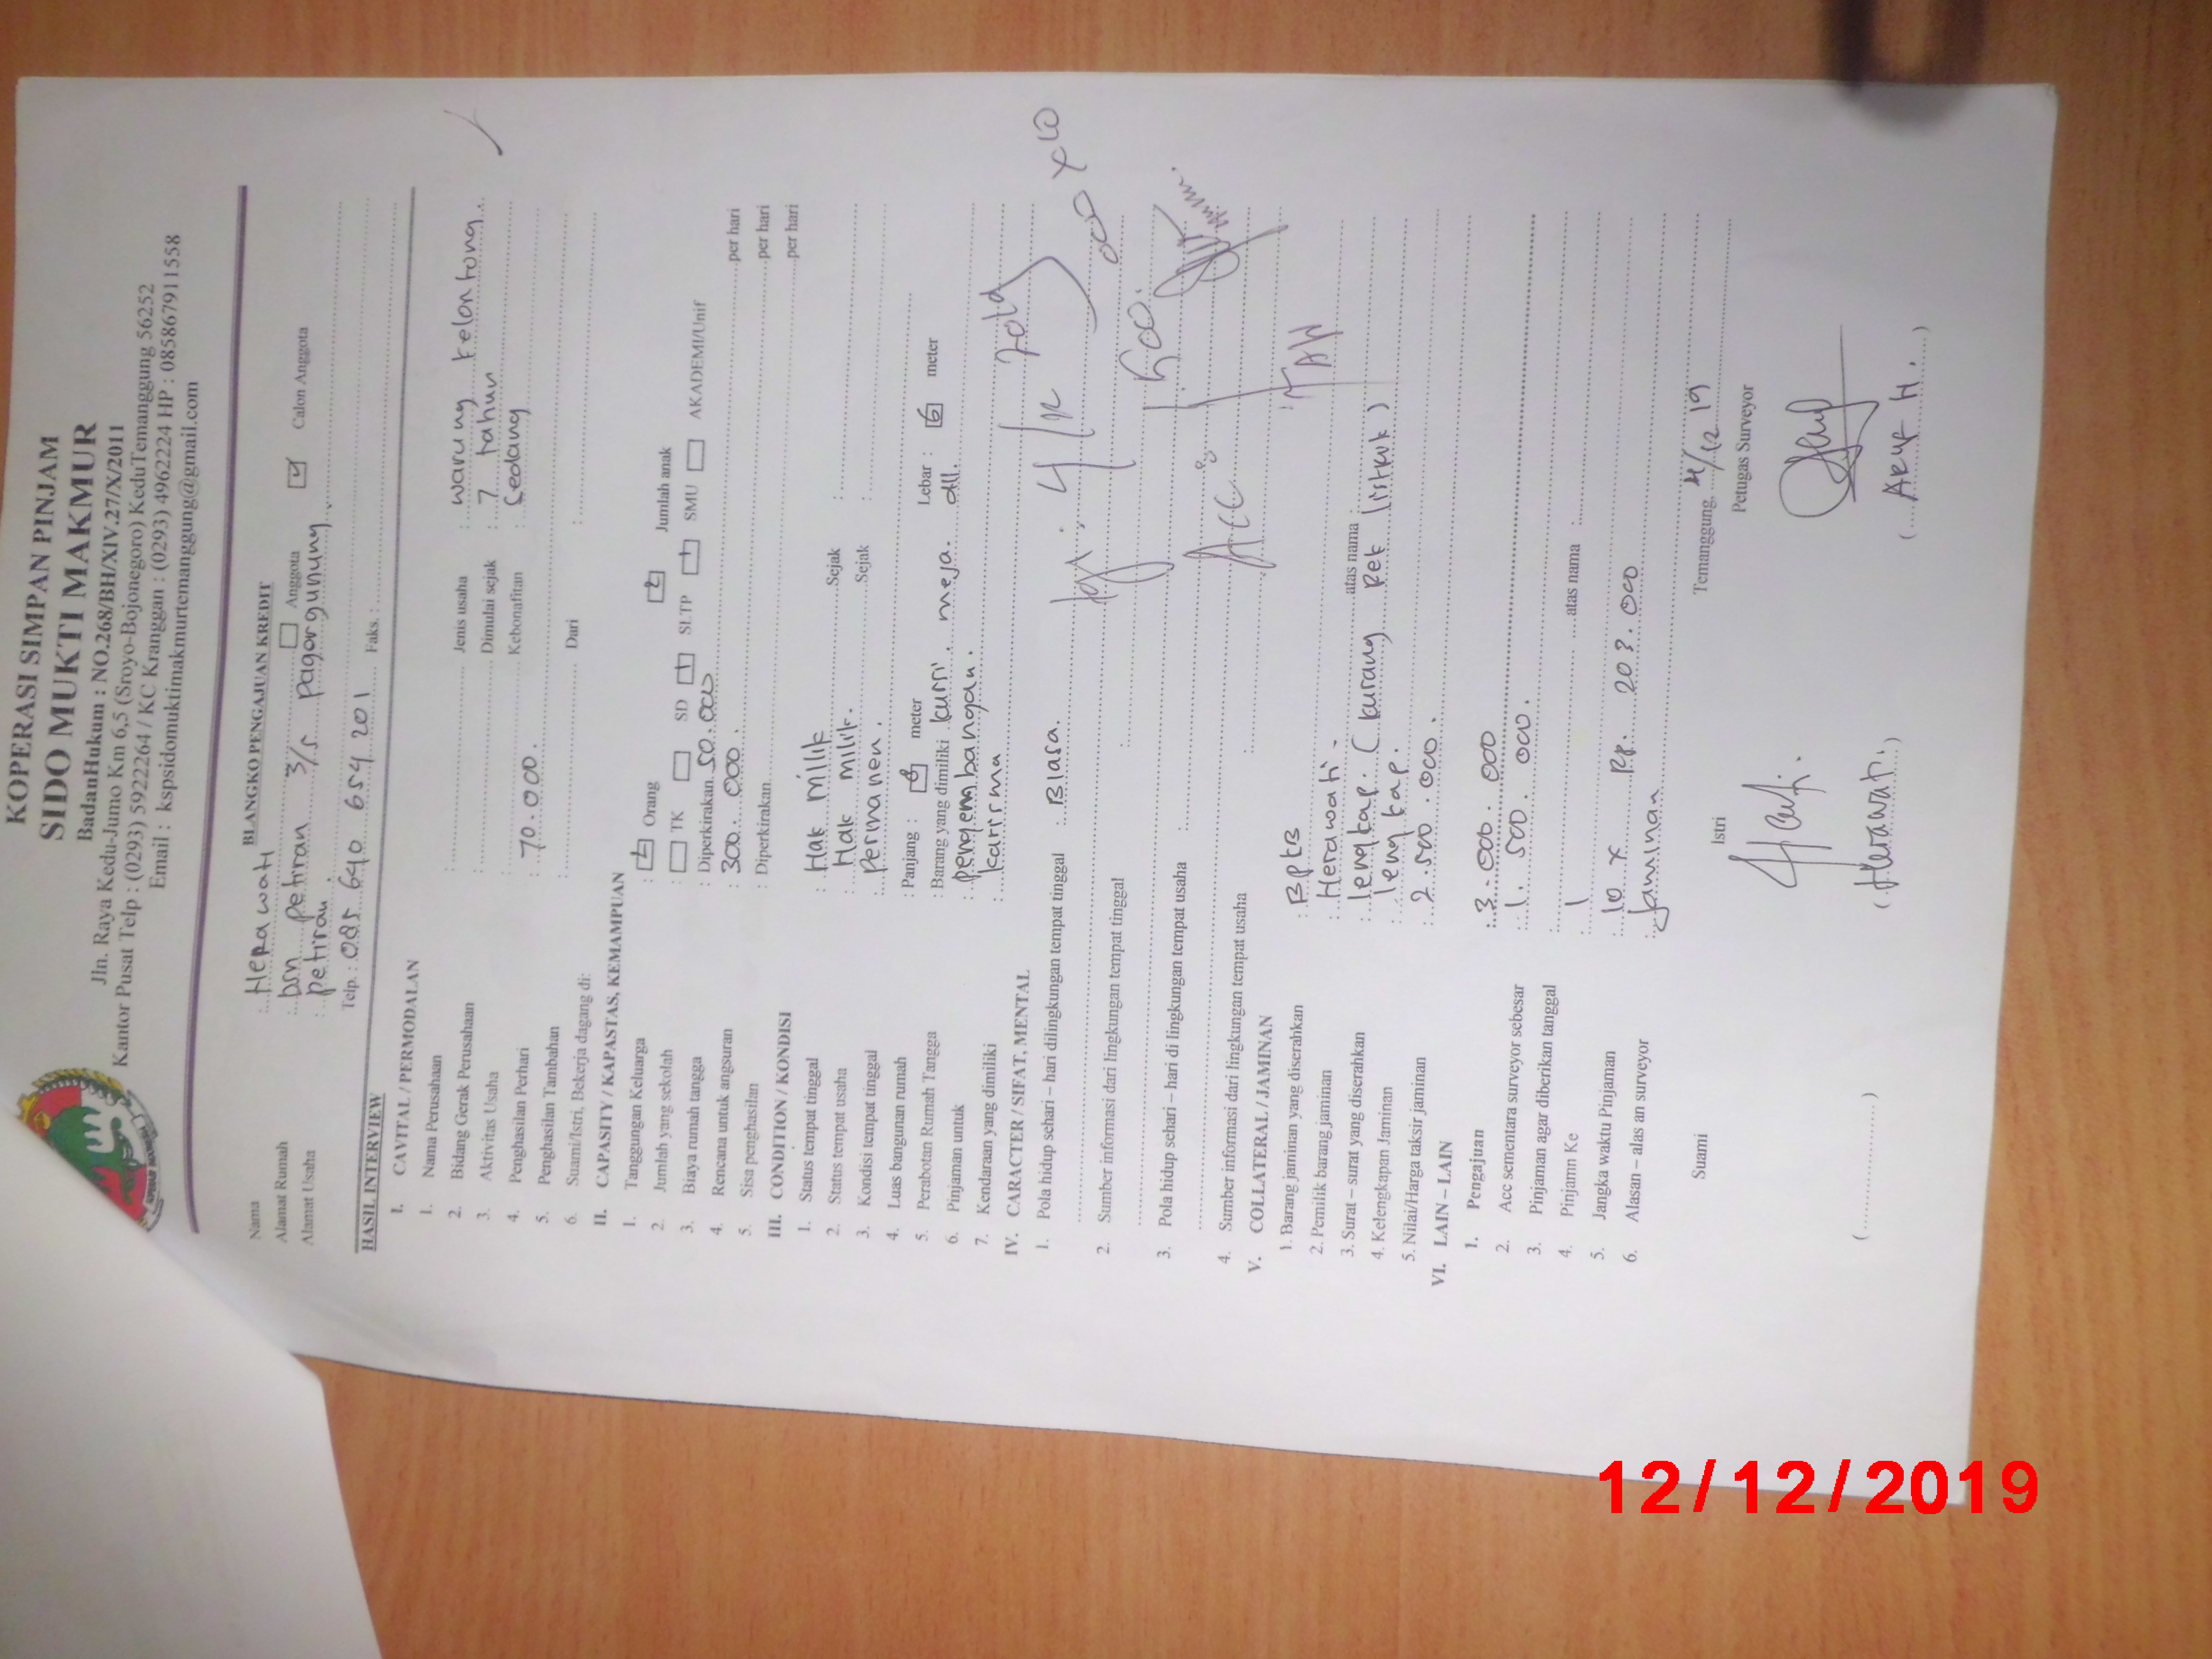 KOPERASI SIMPAN PINJAM
SIDO MUKTI MAKMUR
BadanHukum : NO.268/BH/XIV.27/X/2011
Jln. Raya Kedu-Jumo Km 6,5 (Sroyo-Bojonegoro) KeduTemanggung 56252
Kantor Pusat Telp : (0293) 5922264 / KC Kranggan : (0293) 4962224 HP : 085867911558
Email : kspsidomuktimakmurtemanggung@gmail.com
BLANGKO PENGAJUAN KREDIT
Nama : Herawati Anggota Calon Anggota
Alamat Rumah : Dsn petiran 3/5 pagergunung
Alamat Usaha : petiran
Telp. : 085 640 654 201 Faks. :
HASIL INTERVIEW
I. CAVITAL / PERMODALAN
1. Nama Perusahaan : Jenis usaha : warung kelontong
2. Bidang Gerak Perusahaan : Dimulai sejak : 7 tahun
3. Aktivitas Usaha : Kebonafitan : Sedang
4. Penghasilan Perhari : 70.000.
5. Penghasilan Tambahan : Dari :
6. Suami/Istri, Bekerja dagang di:
II. CAPASITY / KAPASTAS, KEMAMPUAN
1. Tanggungan Keluarga : 4 Orang 2 Jumlah anak
2. Jumlah yang sekolah : TK SD 1 SLTP 1 SMU AKADEMI/Unif
3. Biaya rumah tangga : Diperkirakan 50.000 per hari
4. Rencana untuk angsuran : 300.000. per hari
5. Sisa penghasilan : Diperkirakan per hari
III. CONDITION / KONDISI
1. Status tempat tinggal : Hak milik Sejak :
2. Status tempat usaha : Hak milik. Sejak :
3. Kondisi tempat tinggal : Permanen.
4. Luas bangunan rumah : Panjang : meter Lebar : 6 meter
5. Perabotan Rumah Tangga : Barang yang dimiliki kursi. meja. dll.
6. Pinjaman untuk : pengembangan.
7. Kendaraan yang dimiliki : karirma
IV. CARACTER / SIFAT, MENTAL
1. Pola hidup sehari – hari dilingkungan tempat tinggal : Biasa.
2. Sumber informasi dari lingkungan tempat tinggal :
3. Pola hidup sehari – hari di lingkungan tempat usaha :
4. Sumber informasi dari lingkungan tempat usaha :
Acc
V. COLLATERAL / JAMINAN
1. Barang jaminan yang diserahkan : BPKB
2. Pemilik barang jaminan : Herawati.
3. Surat – surat yang diserahkan : lengkap. (kurang Rek listrik) atas nama :
4. Kelengkapan Jaminan : lengkap.
5. Nilai/Harga taksir jaminan : 2.500.000.
VI. LAIN – LAIN
1. Pengajuan : 3.000.000
2. Acc sementara surveyor sebesar : 1.500.000.
3. Pinjaman agar diberikan tanggal : atas nama :
4. Pinjamn Ke : 1
5. Jangka waktu Pinjaman : 10 x Rp. 203.000
6. Alasan – alas an surveyor : Jaminan
Temanggung, 4/12 19
Suami Istri Petugas Surveyor
(............) (Herawati.) (Arif H.)
12/12/2019